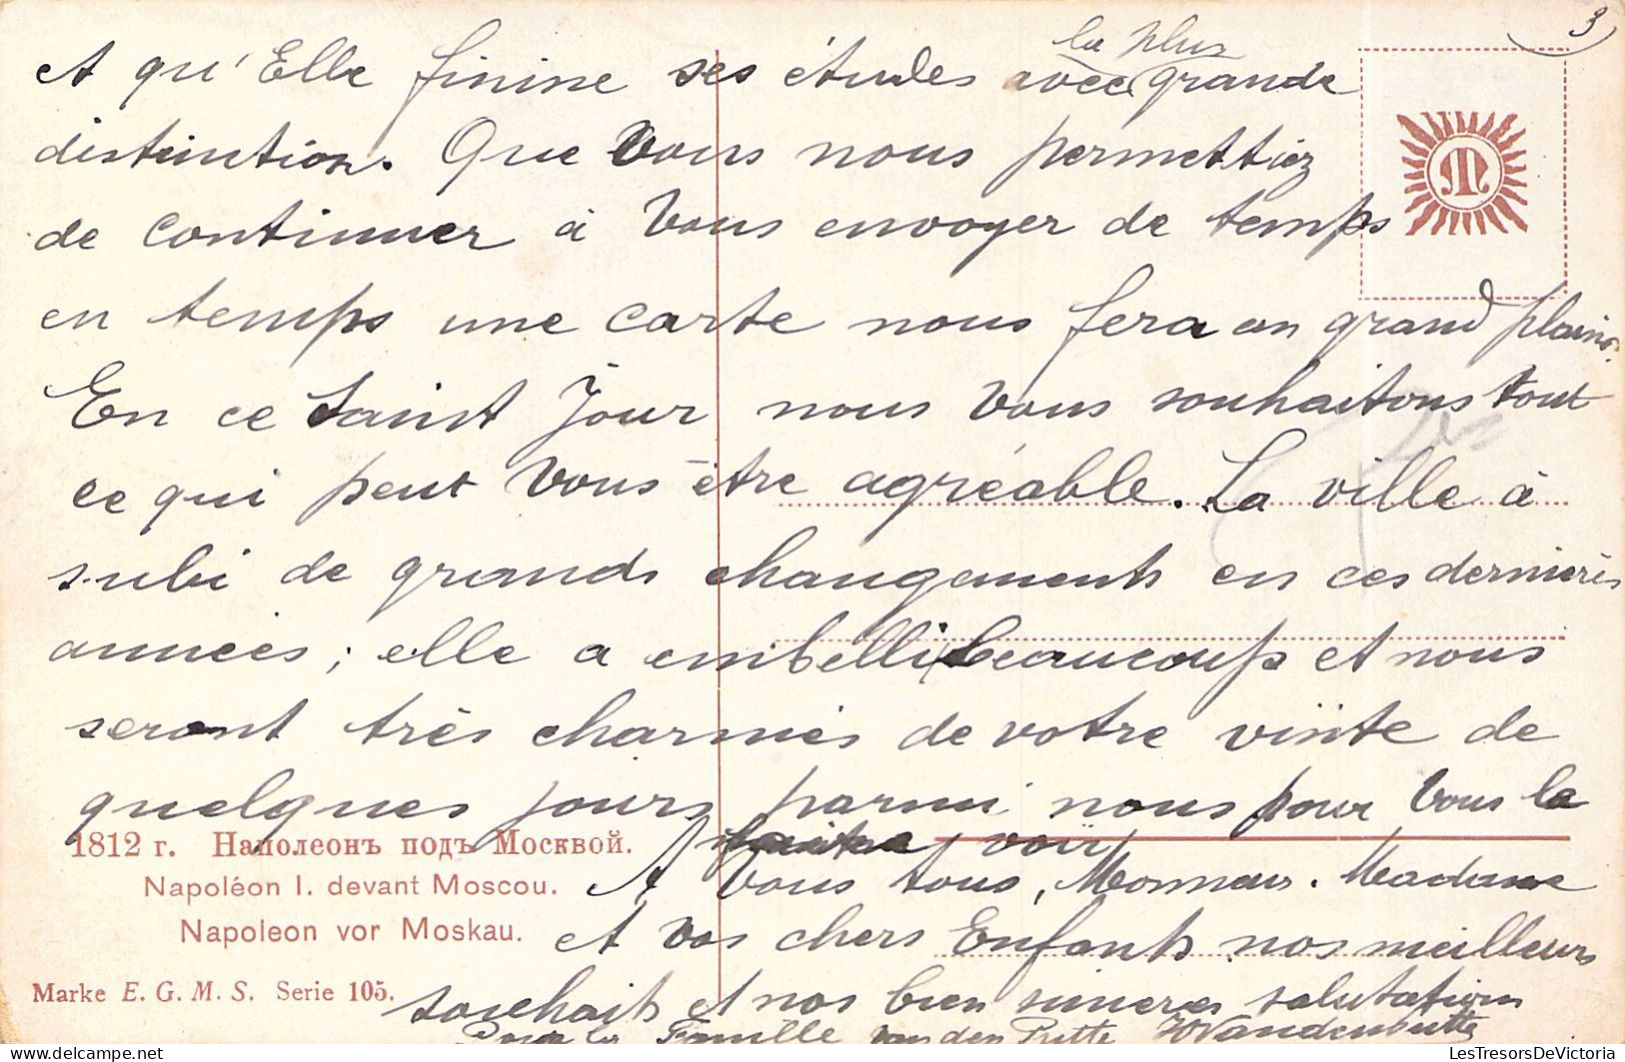 3
la plus
et qu'Elle finine ses études avec grande
distinction. Que Vous nous permettiez
de continuer à Vous envoyer de temps
en temps une carte nous fera un grand plaisir.
En ce Saint Jour nous Vous souhaitons tout
ce qui peut Vous être agréable. La ville à
subi de grands changements en ces dernières
années; elle a embelli beaucoup et nous
seront très charmés de votre visite de
quelques jours parmi nous pour Vous la
voir
1812 г. Наполеонъ подъ Москвой.
Napoléon I. devant Moscou.
Napoleon vor Moskau.
Marke E. G. M. S. Serie 105.
A Vous tous, Monsieur. Madame
et vos chers Enfants nos meilleurs
souhaits et nos bien sincères salutations
Pour la Famille van den Putte Vandenbutte
LesTresorsDeVictoria